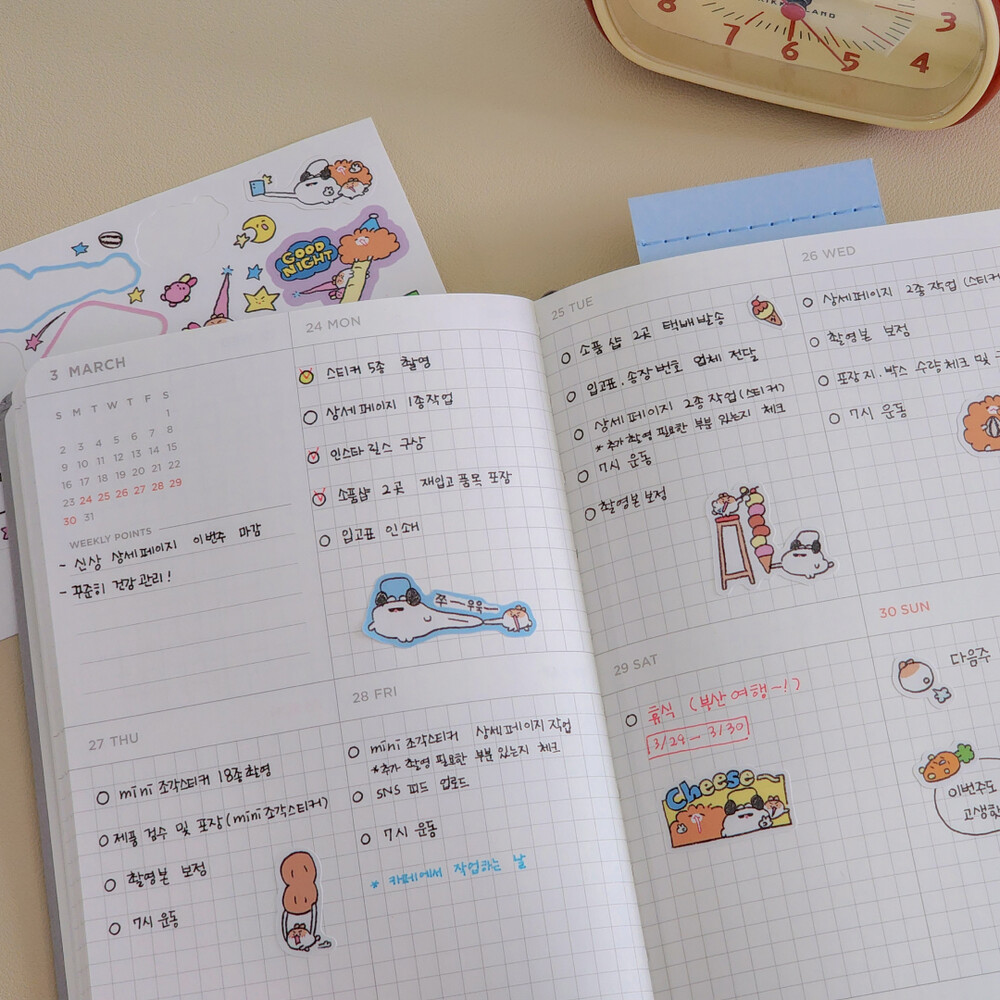 8
7
6
5
4
3
GOOD
NIGHT
3 MARCH
S M T W T F S
1
2 3 4 5 6 7 8
9 10 11 12 13 14 15
16 17 18 19 20 21 22
23 24 25 26 27 28 29
30 31
WEEKLY POINTS
- 신상 상세페이지 이번주 마감
- 꾸준히 건강관리!
24 MON
스티커 5종 촬영
상세페이지 1종작업
인스타 릴스 구상
소품샵 2곳 재입고 품목 포장
입고표 인쇄
쭈ー우욱ー
25 TUE
소품 샵 2곳 택배발송
입고표. 송장번호 업체 전달
상세페이지 2종작업(스티커)
*추가 촬영 필요한 부분 있는지 체크
7시 운동
촬영본 보정
26 WED
상세페이지 2종작업 (스티커
촬영본 보정
포장지. 박스 수량체크 및
7시 운동
27 THU
mini 조각스티커 18종 촬영
제품 검수 및 포장(mini 조각스티커)
촬영본 보정
7시 운동
28 FRI
mini 조각스티커 상세페이지 작업
*추가 촬영 필요한 부분 있는지 체크
SNS 피드 업로드
7시 운동
* 카페에서 작업하는 날
29 SAT
휴식 (부산여행~!)
3/29 - 3/30
Cheese~
30 SUN
다음주
이번주도